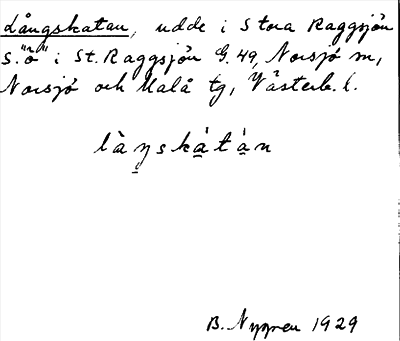 Långskatan, udde i Stora Raggsjön
S. "ö" i St. Raggsjön G. 49, Norsjö sn,
Norsjö och Malå tg, Västerb. l.
làŋskátán
B. Nygren 1929